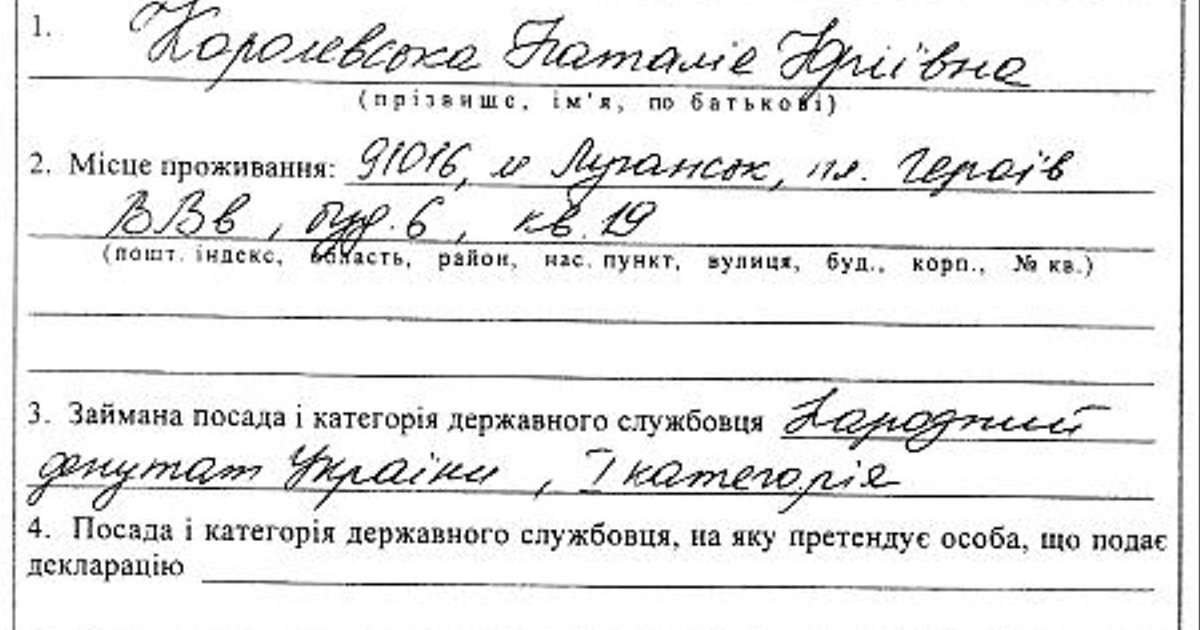 1. Королевська Наталіє Юріївна
(прізвище, ім'я, по батькові)
2. Місце проживання: 91016, м Луганськ, пл. Героїв
ВВв, буд. 6, кв. 19
(пошт. індекс, область, район, нас. пункт, вулиця, буд., корп., № кв.)
3. Займана посада і категорія державного службовця Народний
депутат України, I категорія
4. Посада і категорія державного службовця, на яку претендує особа, що подає
декларацію